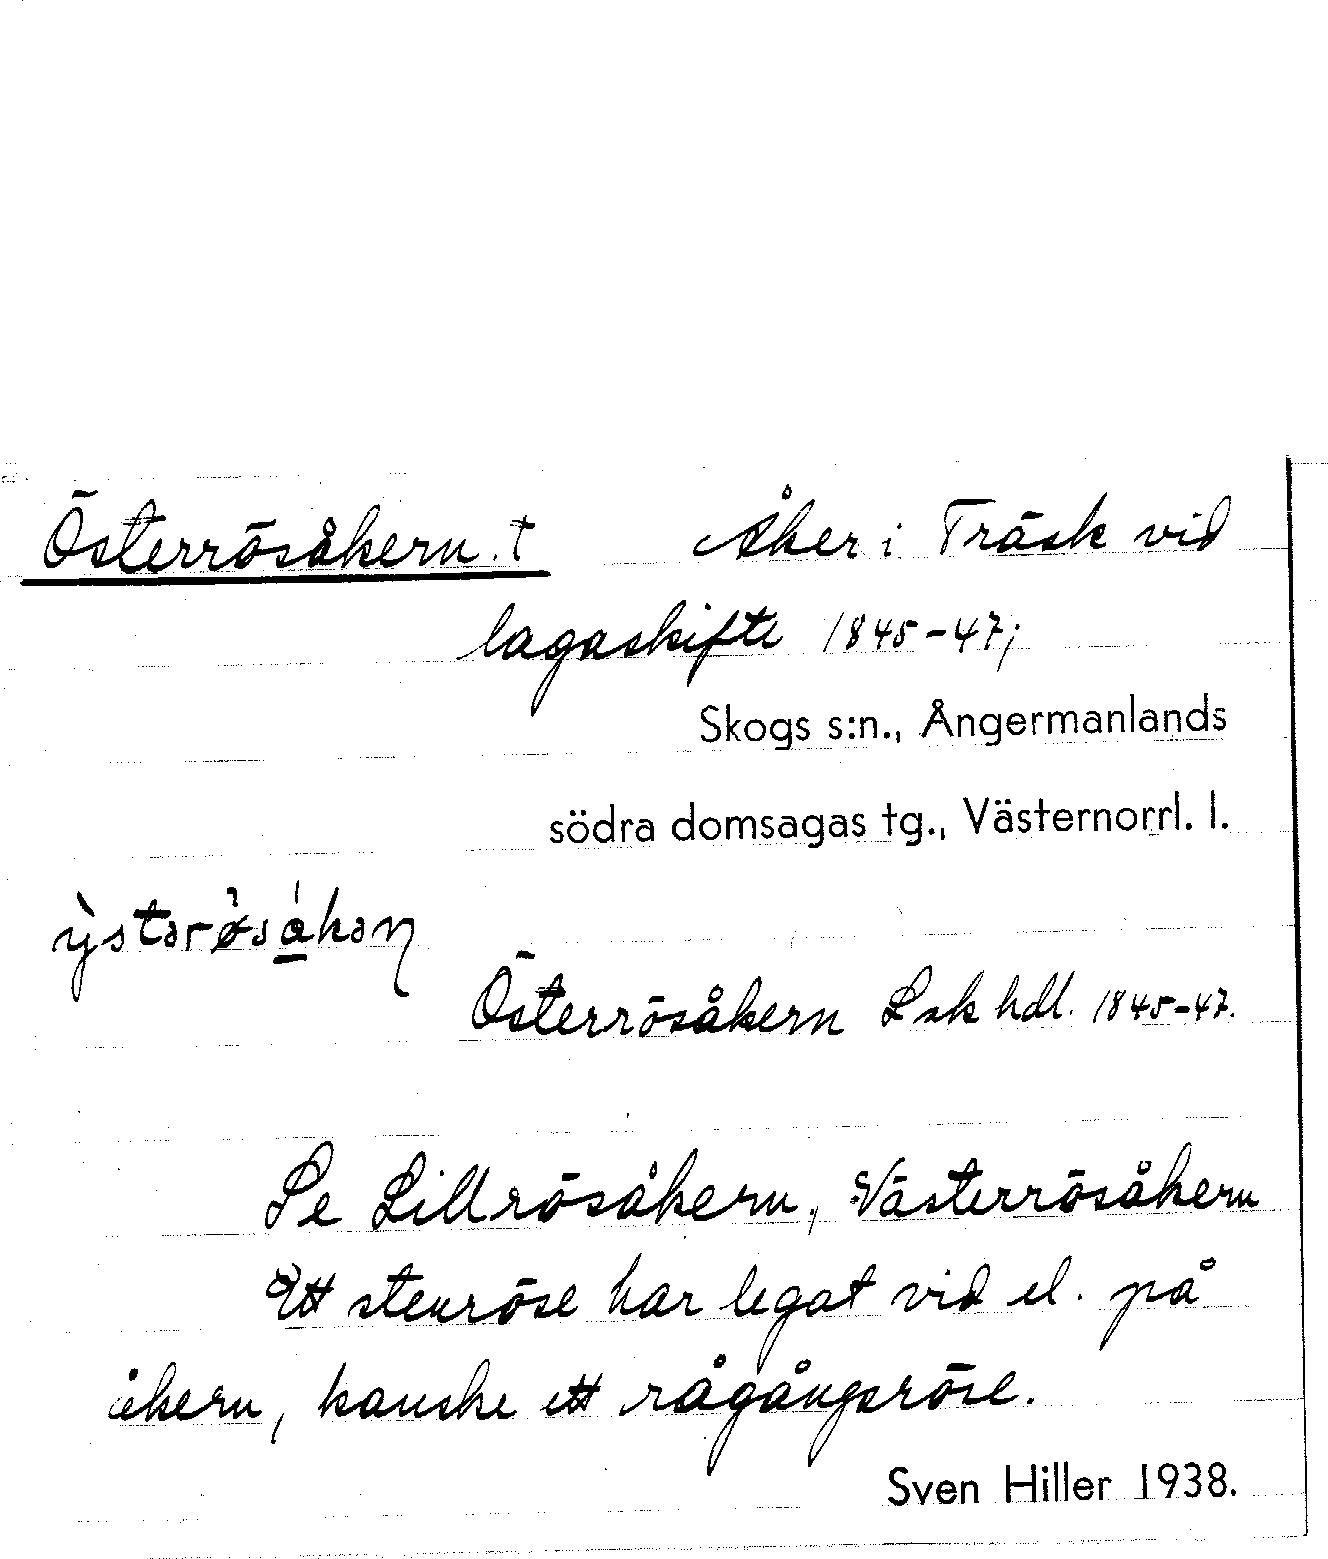 Österrösåkern. † Åker i Träsk vid
lagaskifte 1845-47;
Skogs s:n., Ångermanlands
södra domsagas tg., Västernorrl. l.
Österrösåkern Lsk hdl. 1845-47.
Se Lillrösåkern, Västerrösåkern
Ett stenröse har legat vid el. på
åkern, kanske ett rågångsröse.
Sven Hiller 1938.